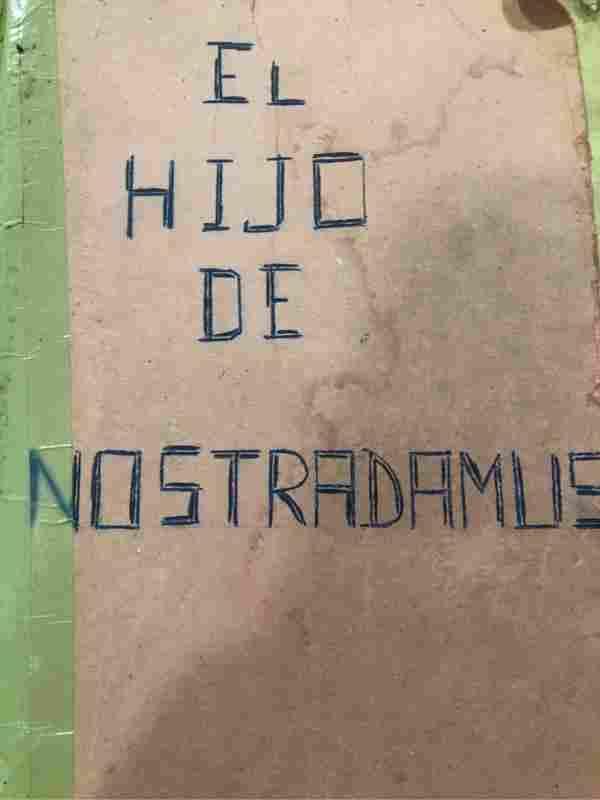 EL
HIJO
DE
NOSTRADAMUS